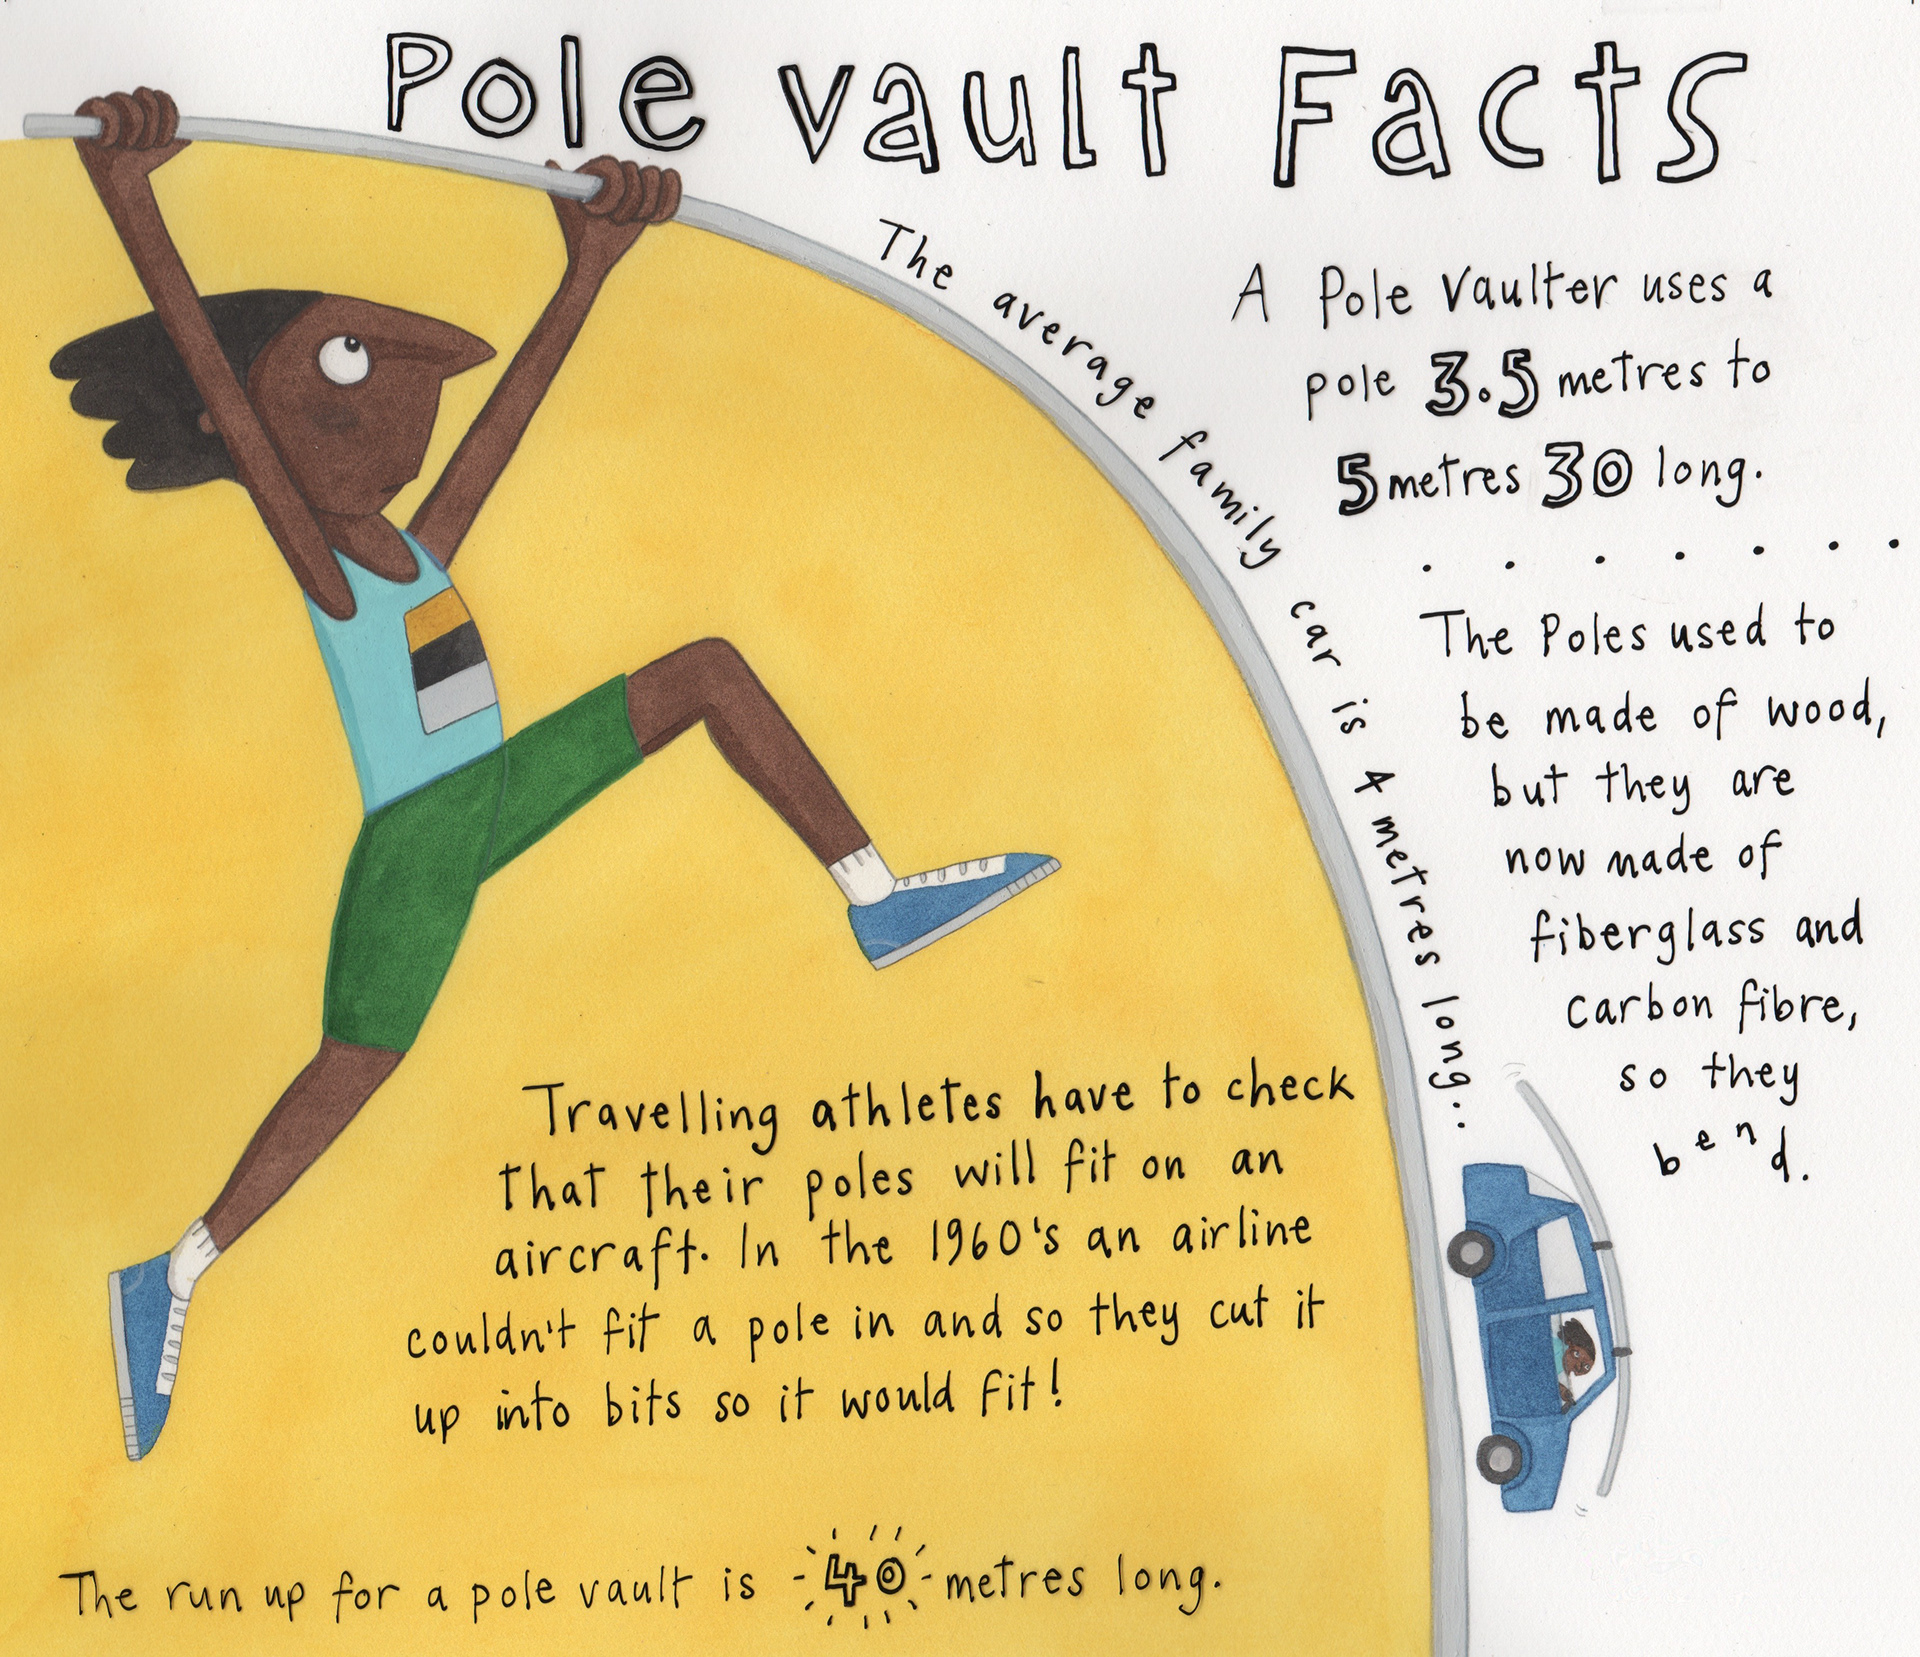 Pole vault Facts
The average family car is 4 metres long...
A Pole Vaulter uses a
pole 3.5 metres to
5 metres 30 long.
. . . . . . .
The Poles used to
be made of wood,
but they are
now made of
fiberglass and
carbon fibre,
so they
bend.
Travelling athletes have to check
that their poles will fit on an
aircraft. In the 1960's an airline
couldn't fit a pole in and so they cut it
up into bits so it would fit!
The run up for a pole vault is 40 metres long.